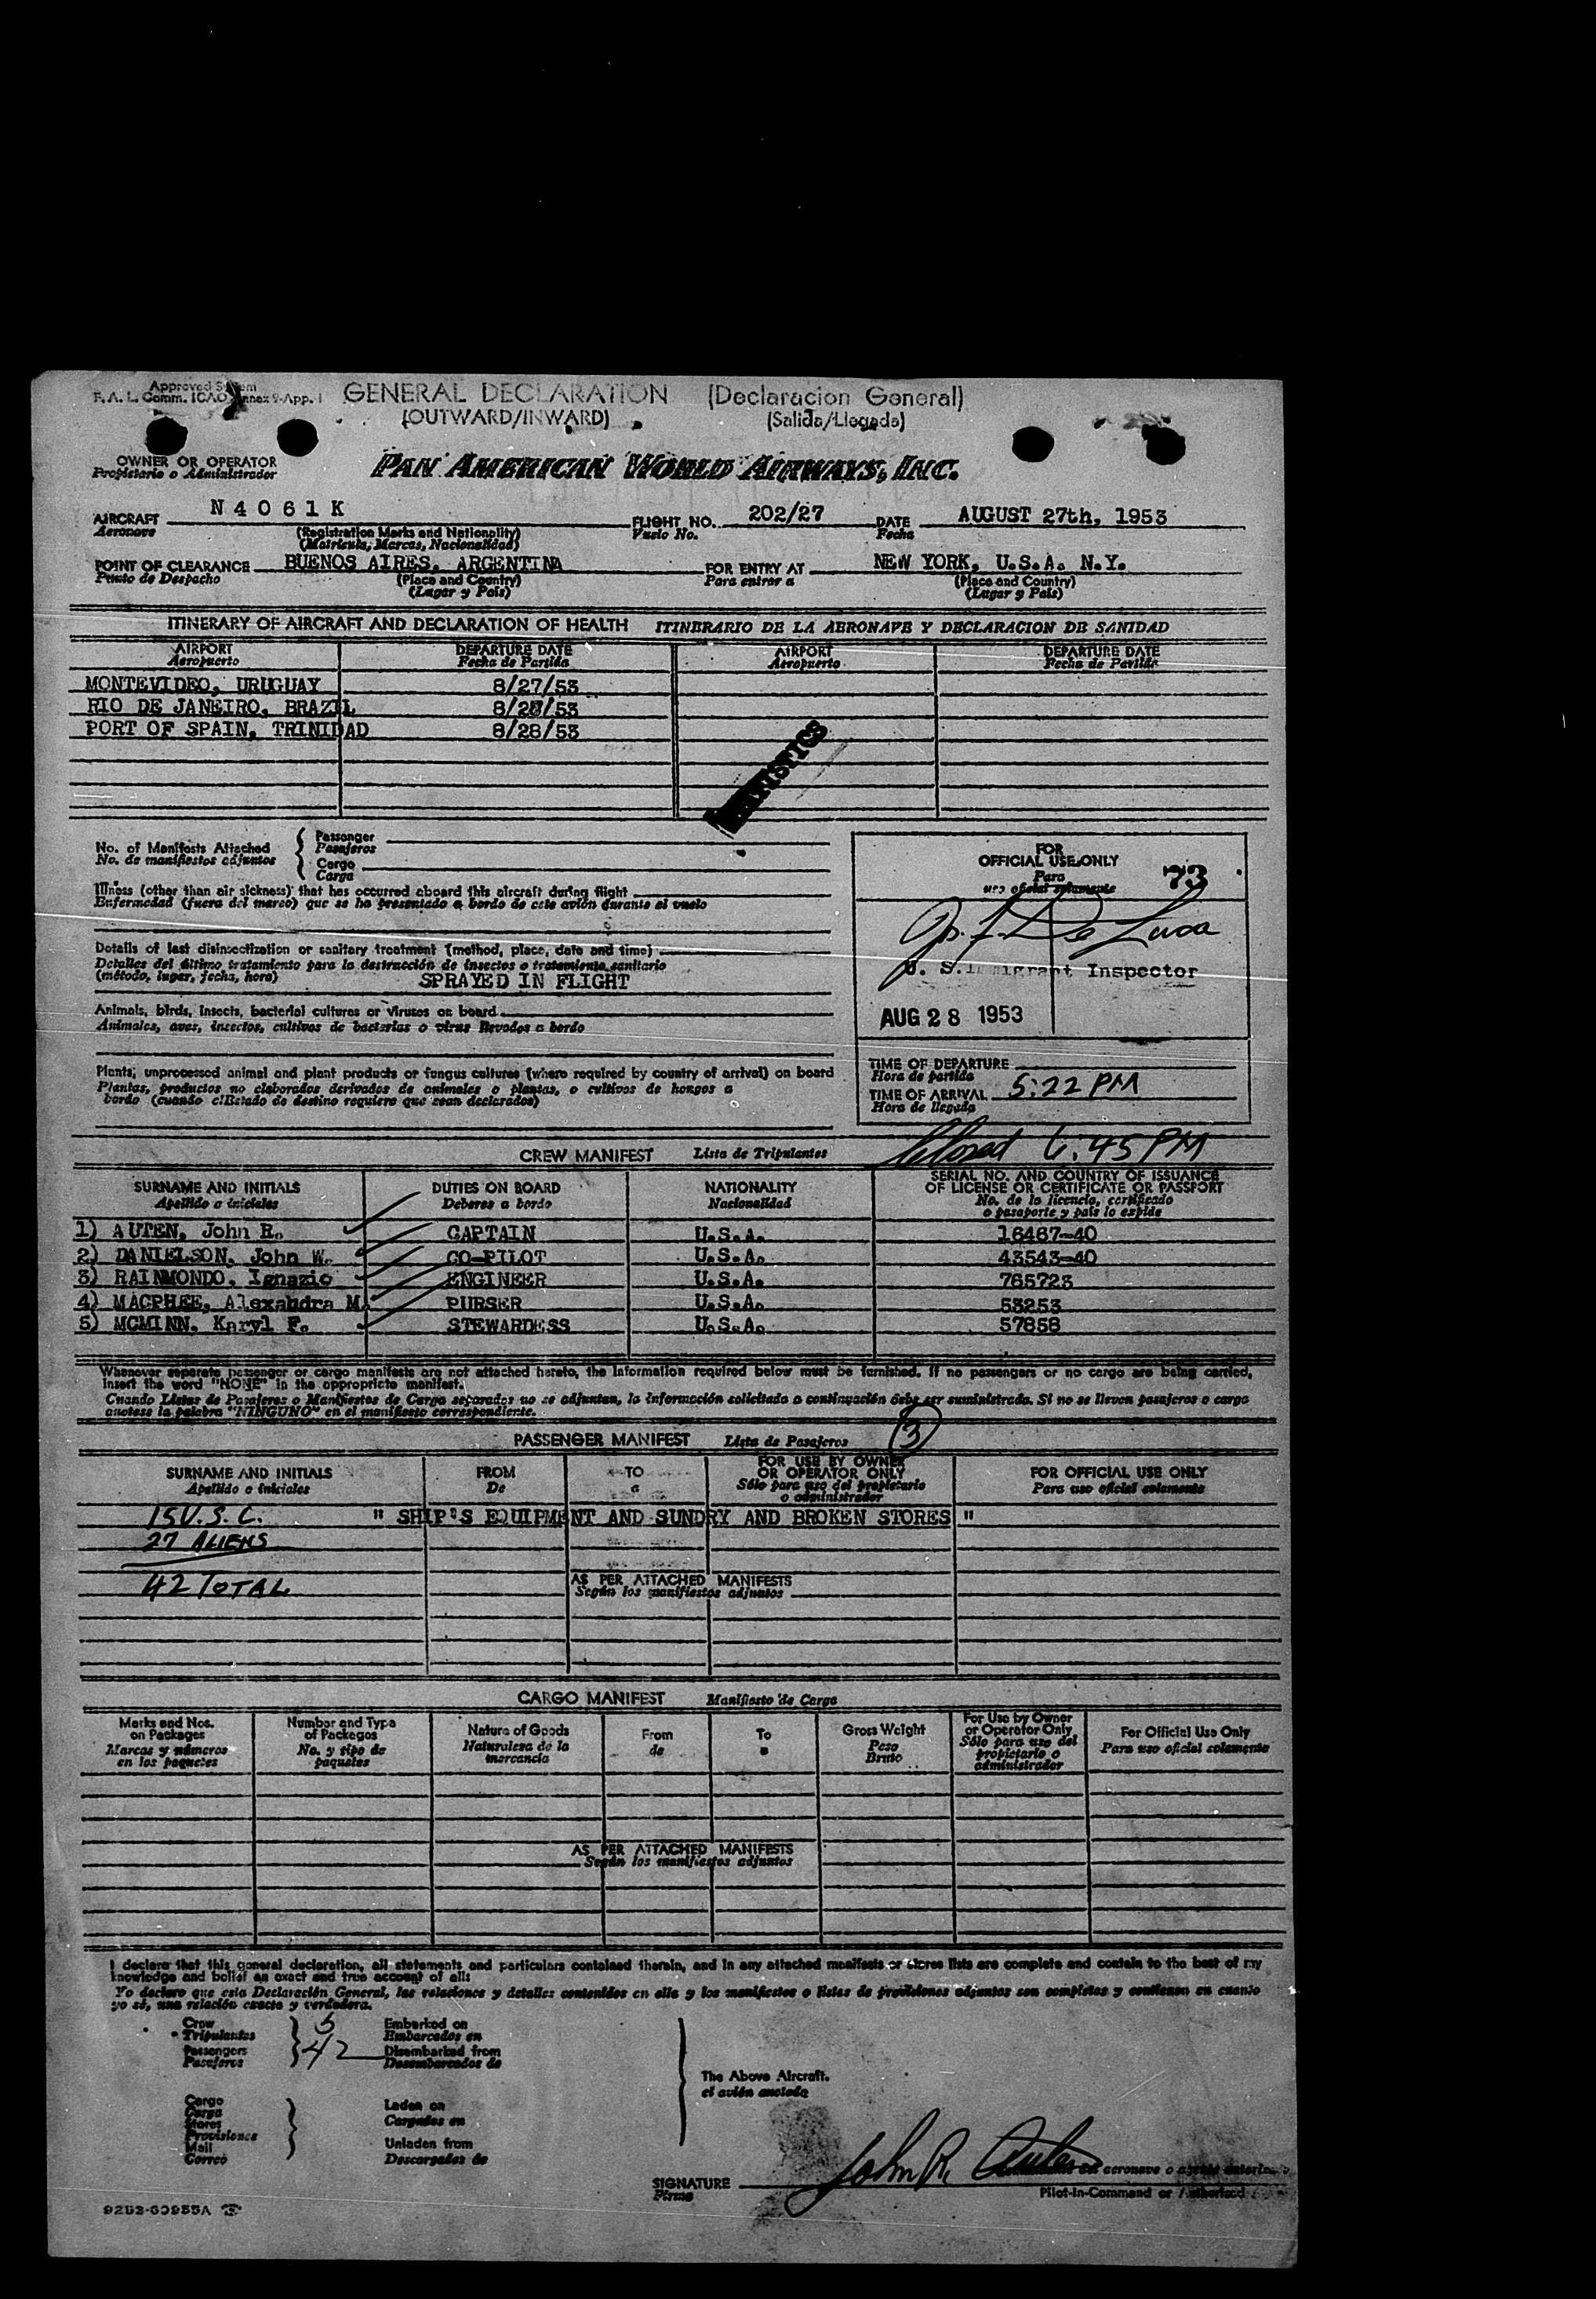 Approved System
F. A. L. Comm. ICAO Annex 9-App. 1
GENERAL DECLARATION (Declaracion General)
(OUTWARD/INWARD) (Salida/Llegada)
OWNER OR OPERATOR
Propietario o Administrador
PAN AMERICAN WORLD AIRWAYS, INC.
AIRCRAFT N 4 0 6 1 K FLIGHT NO. 202/27 DATE AUGUST 27th, 1953
Aeronave (Registration Marks and Nationality) Vuelo No. Fecha
(Matricula, Marcas, Nacionalidad)
POINT OF CLEARANCE BUENOS AIRES, ARGENTINA FOR ENTRY AT NEW YORK, U.S.A. N.Y.
Punto de Despacho (Place and Country) Para entrar a (Place and Country)
(Lugar y País) (Lugar y País)
ITINERARY OF AIRCRAFT AND DECLARATION OF HEALTH ITINERARIO DE LA AERONAVE Y DECLARACION DE SANIDAD
AIRPORT DEPARTURE DATE AIRPORT DEPARTURE DATE
Aeropuerto Fecha de Partida Aeropuerto Fecha de Partida
MONTEVIDEO, URUGUAY 8/27/53
RIO DE JANEIRO, BRAZIL 8/27/53
PORT OF SPAIN, TRINIDAD 8/28/53
STATISTICS
No. of Manifests Attached
No. de manifiestos adjuntos
Passenger
Pasajeros
Cargo
Carga
Illness (other than air sickness) that has occurred aboard this aircraft during flight
Enfermedad (fuera del mareo) que se ha presentado a bordo de este avión durante el vuelo
Details of last disinsectization or sanitary treatment (method, place, date and time)
Detalles del último tratamiento para la destrucción de insectos o tratamiento sanitario
(método, lugar, fecha, hora) SPRAYED IN FLIGHT
Animals, birds, insects, bacterial cultures or viruses on board
Animales, aves, insectos, cultivos de bacterias o virus llevados a bordo
Plants, unprocessed animal and plant products or fungus cultures (where required by country of arrival) on board
Plantas, productos no elaborados derivados de animales o plantas, o cultivos de hongos a
bordo (cuando el Estado de destino requiere que sean declarados)
FOR
OFFICIAL USE ONLY
Para
uso oficial solamente
73
De Luca
U. S. Immigrant Inspector
AUG 28 1953
TIME OF DEPARTURE
Hora de partida
TIME OF ARRIVAL 5:22 PM
Hora de llegada
6:45 PM
CREW MANIFEST Lista de Tripulantes
SURNAME AND INITIALS DUTIES ON BOARD NATIONALITY SERIAL NO. AND COUNTRY OF ISSUANCE
Apellido o iniciales Deberes a bordo Nacionalidad OF LICENSE OR CERTIFICATE OR PASSPORT
No. de la licencia, certificado
o pasaporte y país lo expide
1) AUTEN, John R. CAPTAIN U.S.A. 16467-40
2) DANIELSON, John W. CO-PILOT U.S.A. 43543-40
3) RAINMONDO, Ignazio ENGINEER U.S.A. 765723
4) MACPHEE, Alexandra M. PURSER U.S.A. 53253
5) MCMINN, Karyl F. STEWARDESS U.S.A. 57858
Whenever separate passenger or cargo manifests are not attached hereto, the information required below must be furnished. If no passengers or no cargo are being carried,
insert the word "NONE" in the appropriate manifest.
Cuando Listas de Pasajeros o Manifiestos de Carga separados no se adjuntan, la información solicitada a continuación debe ser suministrada. Si no se lleven pasajeros o carga
anotese la palabra "NINGUNO" en el manifiesto correspondiente.
PASSENGER MANIFEST Lista de Pasajeros 3
SURNAME AND INITIALS FROM TO FOR USE BY OWNER OR OPERATOR ONLY FOR OFFICIAL USE ONLY
Apellido o iniciales De a Sólo para uso del propietario o administrador Para uso oficial solamente
15 U.S.C. " SHIP'S EQUIPMENT AND SUNDRY AND BROKEN STORES "
27 ALIENS
42 TOTAL AS PER ATTACHED MANIFESTS
Según los manifiestos adjuntos
CARGO MANIFEST Manifiesto de Carga
Marks and Nos. on Packages Number and Type of Packages Nature of Goods From To Gross Weight For Use by Owner or Operator Only For Official Use Only
Marcas y números en los paquetes No. y tipo de paquetes Naturaleza de la mercancía de a Peso Bruto Sólo para uso del propietario o administrador Para uso oficial solamente
AS PER ATTACHED MANIFESTS
Según los manifiestos adjuntos
I declare that this general declaration, all statements and particulars contained therein, and in any attached manifests or stores lists are complete and contain to the best of my
knowledge and belief an exact and true account of all:
Yo declaro que esta Declaración General, las relaciones y detalles contenidos en ella y los manifiestos o listas de provisiones adjuntos son completos y contienen en cuanto
yo sé, una relación exacta y verdadera.
Crew 5 Embarked on
Tripulantes Embarcados en
Passengers 42 Disembarked from
Pasajeros Desembarcados de
The Above Aircraft.
el avión anotado
Cargo Laden on
Carga Cargados en
Stores
Provisiones
Mail Unladen from
Correo Descargados de
SIGNATURE John R. Auten
Firma
aeronave o agente
Pilot-in-Command or Authorized
92B2-60955A